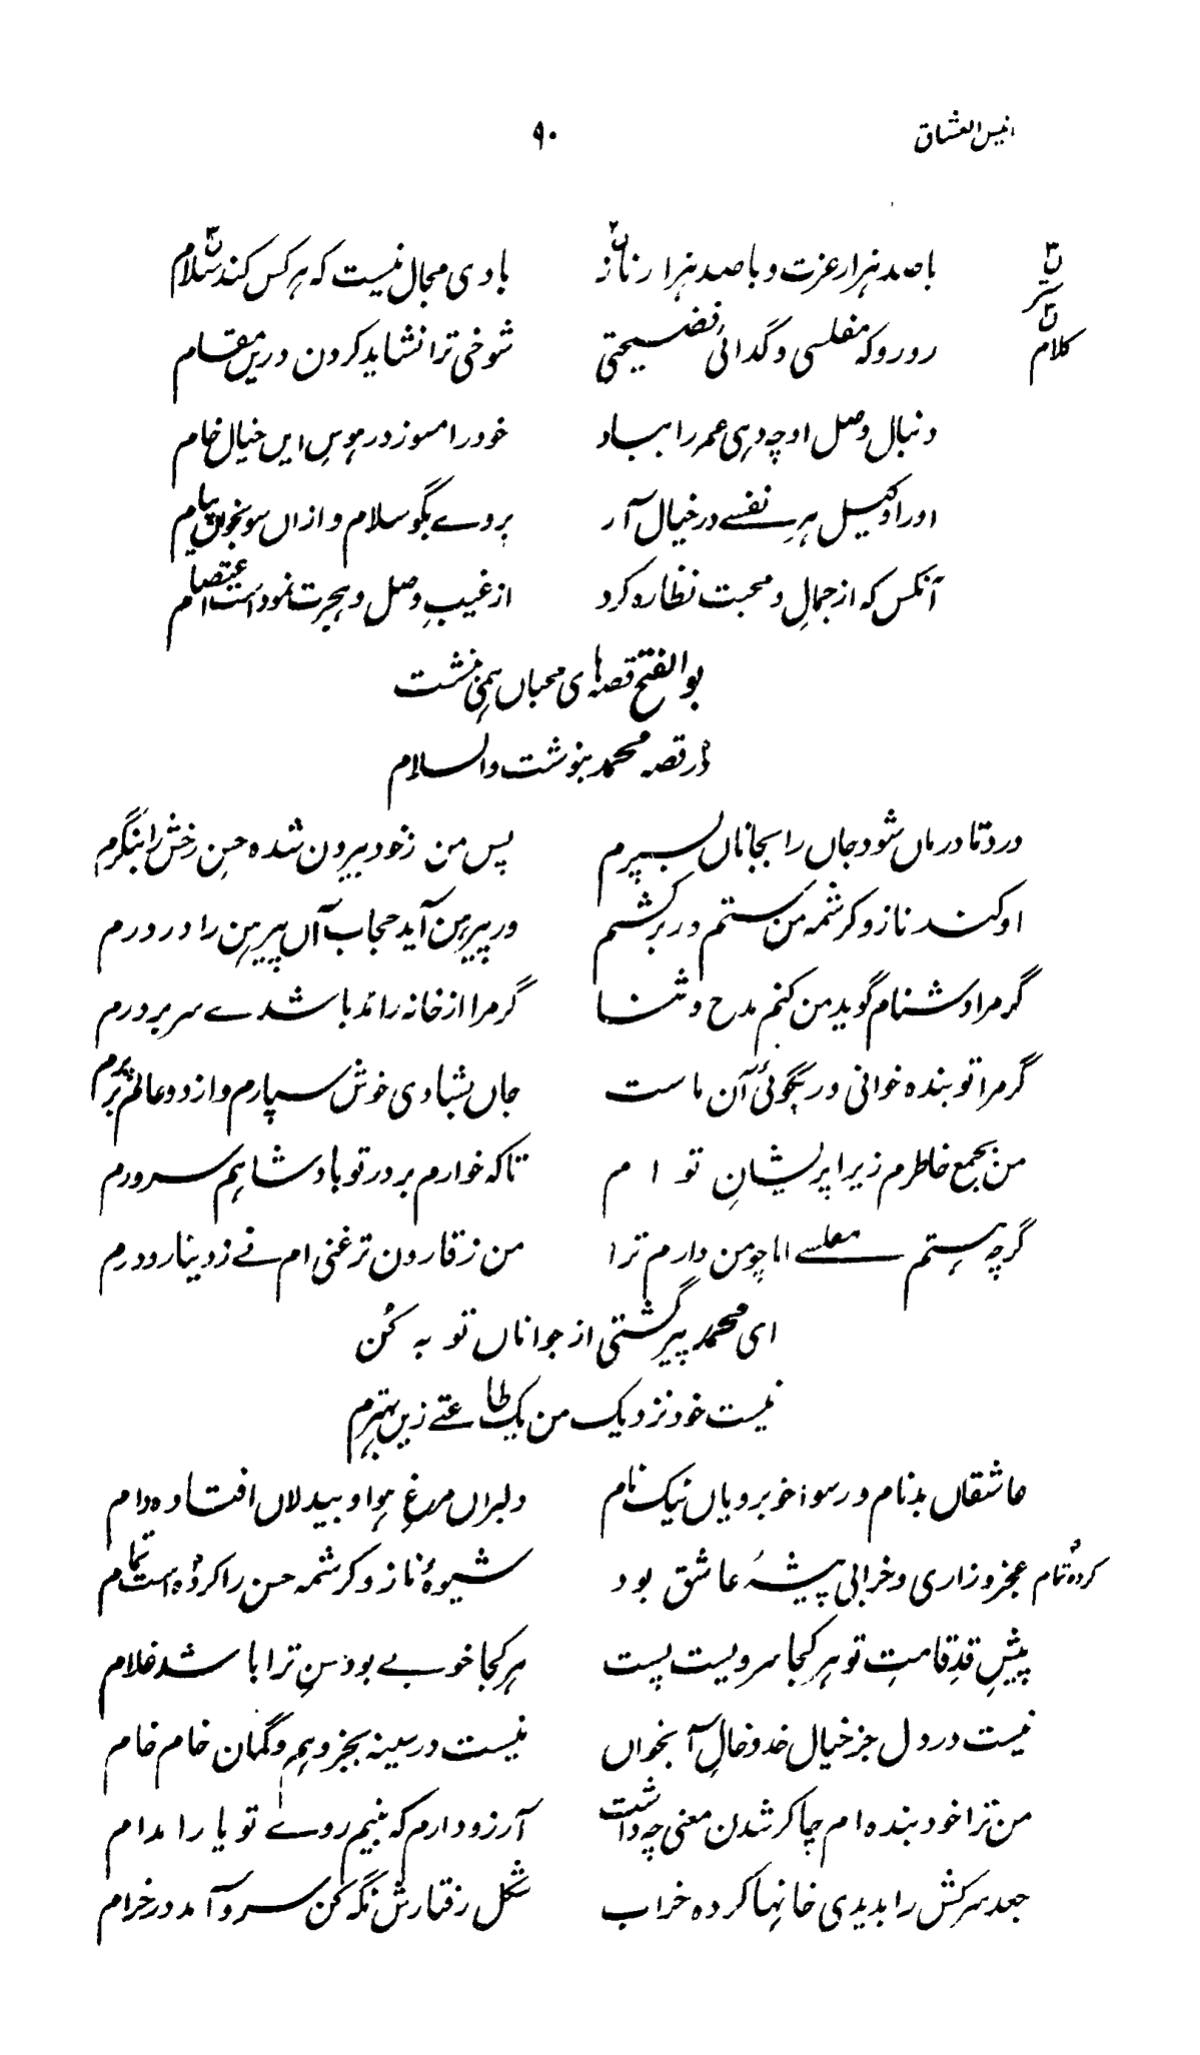 انیس العشاق
۹۰
باصد ہزار عزت و باصد ہزار ناز بادی مجال نیست کہ ہرکس کند سلام
کلام
رو رو کہ مفلسی و گدائی فضیحتی شوخی ترا نشاید کردن دریں مقام
دنبال وصل او چہ دہی عمر را بباد خود را مسوز در ہوسِ ایں خیال خام
اورا وکیل ہر نفسے در خیال آر بروے بگو سلام و ازاں سو بخواں پیام
آنکس کہ از جمالِ و محبت نظارہ کرد از غیبِ وصل و ہجرت نمود است اعتصام
بوالفتح قصہای محباں ہمی نبشت
در قصہ محمد بنوشت والسلام
درد تا درماں شود جاں را بجاناں بسپرم پس من زخود بیروں شدہ حسن رخش را بنگرم
او کند ناز و کرشمہ من ستم در بر کشم ور پیرہن آید حجاب آں پیرہن را در درم
گر مرا دشنام گوید من کنم مدح و ثنا گر مرا از خانہ راند باشدے سر بر درم
گر مرا تو بندہ خوانی ور بگوئی آن ماست جاں بشادی خوش سپارم و از دو عالم بر پرم
من بجمع خاطرم زیرا پریشانِ تو ام تا کہ خوارم بر در تو بادشاہم سرورم
گرچہ ہستم مفلسے اما چو من دارم ترا من ز قارون تر غنی ام نے ز دینار و درم
ای محمد پیر گشتی از جواناں توبہ کُن
نیست خود نزدیک من یک طاعتے زیں بہترم
عاشقاں بدنام و رسوا خوبرویاں نیک نام دلبراں مرغِ ہوا و بیدلاں افتادہ دام
عجز و زاری و خرابی پیشۂ عاشق بود شیوۂ ناز و کرشمہ حسن را کردہ است تمام
کردہ تمام
پیشِ قدِ قامتِ تو ہر کجا سرویست پست ہر کجا خوبے بود حسنِ ترا باشد غلام
نیست در دل جز خیال خد و خالِ آنجواں نیست در سینہ بجز وہم و گمان خام خام
من ترا خود بندہ ام چاکر شدن معنی چہ داشت آرزو دارم کہ بینم روے تو یارا مدام
جعد سرکش را بدیدی خانہا کردہ خراب شکل رفتارش نگہ کن سرو آمد در خرام